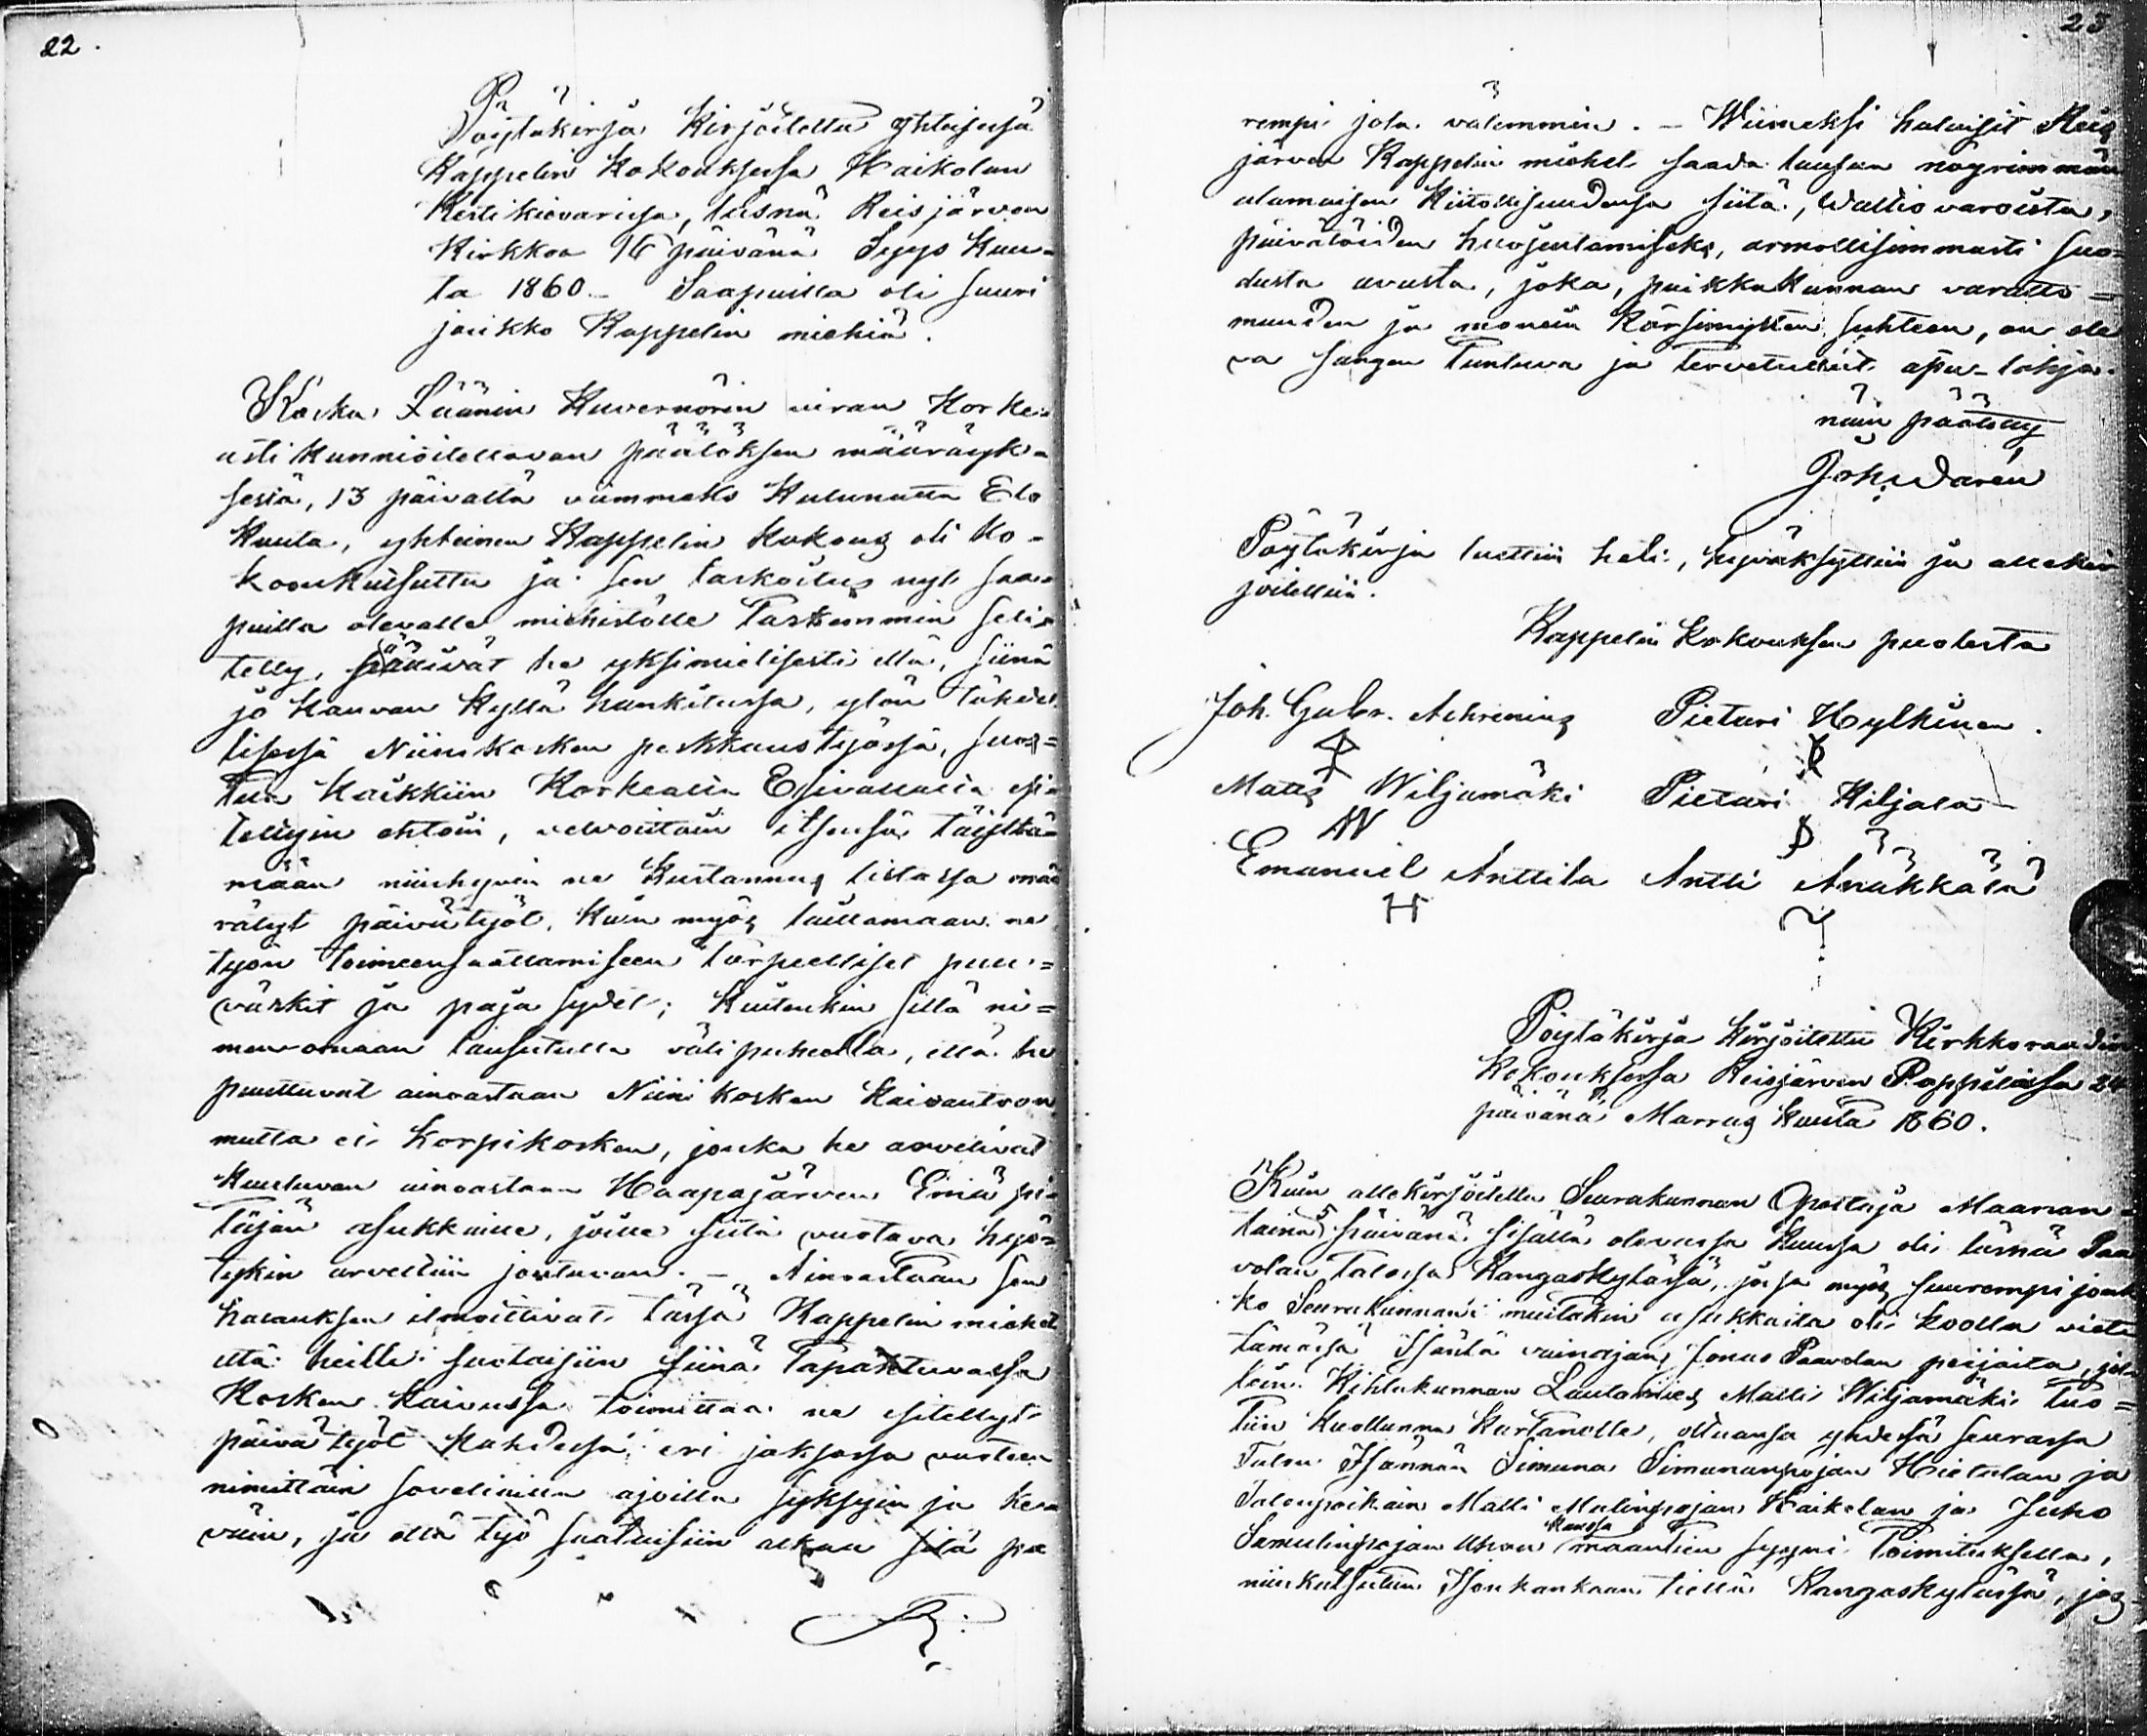 22.
Pöytäkirja Kirjoitettu yhteisessä
Kappelin Kokouksessa Kaikolan
Kestikievarissa, läsnä Reisjärven
Kirkkoa 16 päivänä Syys Kuu-
ta 1860. Saapuilla oli suuri
joukko Kappelin miehiä.
Koska Läänin Kuvernörin viran Korke-
asti kunnioitettavan päätöksen määräyk-
sestä, 13 päivältä viimmeks Kulunutta Elo
Kuuta, yhteinen Kappelin Kokous oli Ko-
koonkutsuttu ja sen tarkoitus nyt saa-
puilla olevalle miehistölle Tarkemmin seli-
telty, he yksimielisesti että, siinä
jo Kauvan Kyllä hankitussa, ylön tähdel
lisessä Niinikosken perkkaustyössä, suos=
tua Kaikkiin Korkealta Esivallalta esi-
teltyin ehtoin, velvoittain itsensä täyttä-
mään niinhyvin ne Kustannus listassa mää
rätyt päivätyöt, Kuin myös taittamaan ne
työn Toimeensaattamiseen tarpeelliset puu-=
värkit ja paja sydet; Kuitenkin sillä ni=
menomaan lausutulla välipuheella, että he
puuttuvat ainoastaan Niinikosken Kaivantoon
mutta ei Korpikosken, jonka he arvelivat
Kuuluvan ainoastaan Haapajärven Emä pi-
täjän asukkaille, joille siitä vastava hyö=
tykin arveltiin joutuvan. – Ainoastaan sen
halauksen ilmoittivat tässä Kappelin miehet
että heille suotaisiin siinä Tapahtuvassa
Kosken Kaivussa toimittaa ne esitellyt
päivätyöt Kahdessa eri jaksossa vuoteen
nimittäin soveliailla ajoilla syksyin ja ke-
väin, ja että työ saataisiin alkaa sitä pa
23
rempi jota välemmin. – Wiimeksi halaisit Reis
järven Kappelin miehet saada lausua nöyrimmän
alamaisen Kiitollisuudensa siitä, Waltiovaroista,
päivätöiden huojentamiseks, armollisimmasti suo=
dusta avusta, joka, paikkakunnan varatto=
muuden ja monein Kärsimysten suhteen, on ole
va sangen Tuntuva ja Tervetullut apu-lahja.
näin päätetty
Joh. Daren
Pöytäkirja luettiin heti, hyväksyttiin ja allekir
joitettiin.
Kappelin Kokouksen puolesta
Joh. Gabr. Achrenius Pietari Hylkinen.
Matts Wiljamäki Pietari Kiljala
W
Emanuel Anttila Antti Änäkkälä
H
Pöytäkirja Kirjoitettu Kirkkoraadin
Kokouksessa Reisjärven Pappilassa 24
päivänä Marras Kuuta 1860.
Kuin allekirjoitettu Seurakunnan Opettaja Maanan-
taina päivänä sisällä olevassa Kuussa oli läsnä Paa
volan Talossa Kangaskylässä, jossa myös suurempi jouk
ko Seurakunnan muitakin asukkaita oli koolla viet
tämässä Isäntä vainajan Jonas Paavolan peijaita, jol
loin Kihlakunnan Lautamies Matti Wiljamäki Tuo=
tiin Kuollunna Kartanolle, oltuansa yhdessä seurassa
Talon Isännän Simuna Simunanpojan Hietalan ja
Talonpoikain Matti Matinpojan Kaikolan ja Juho
Samulinpojan Ahon Kanssa maantien syyni Toimituksella,
niinkutsutun Isonkankaan tiellä Kangaskylässä, jos